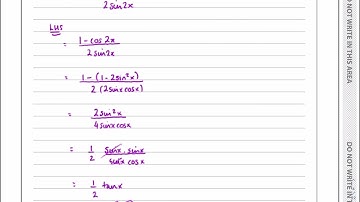 2 sin2x
LHS
= 1 - cos 2x / 2 sin2x
= 1 - (1 - 2sin²x) / 2 (2sinxcosx)
= 2sin²x / 4sinxcosx
= 1/2 sinx . sinx / sinx cosx
= 1/2 tanx
DO NOT WRITE IN THIS AREA
DO NOT WRITE IN